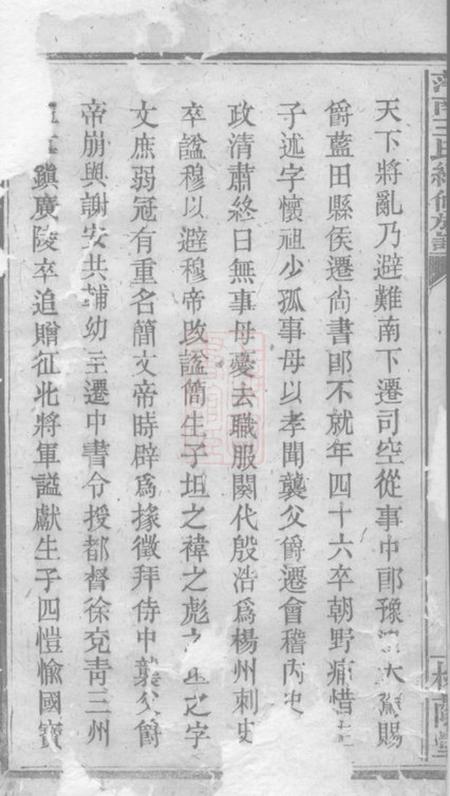 天下將亂乃避難南下遷司空從事中郎豫迎大駕賜
爵藍田縣侯遷尚書郎不就年四十六卒朝野痛惜生
子述字懷祖少孤事母以孝聞襲父爵遷會稽內史
政清肅終日無事母憂去職服闋代殷浩爲楊州刺史
卒諡穆以避穆帝改諡簡生子坦之禕之彪之坦之字
文庶弱冠有重名簡文帝時辟爲掾徵拜侍中襲父爵
帝崩與謝安共輔幼主遷中書令授都督徐兗靑三州
鎭廣陵卒追贈征北將軍謚獻生子四愷愉國寶